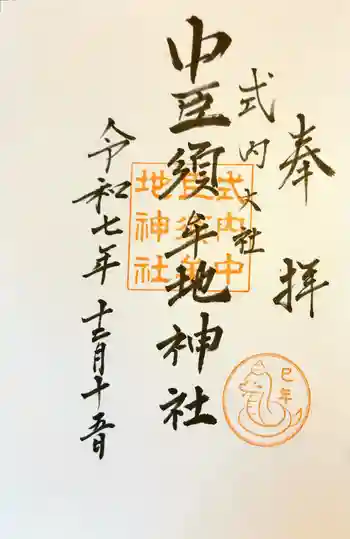 奉拝
式内大社
中臣須牟地神社
令和七年 十二月十五日
式内中
臣須牟
地神社
巳年